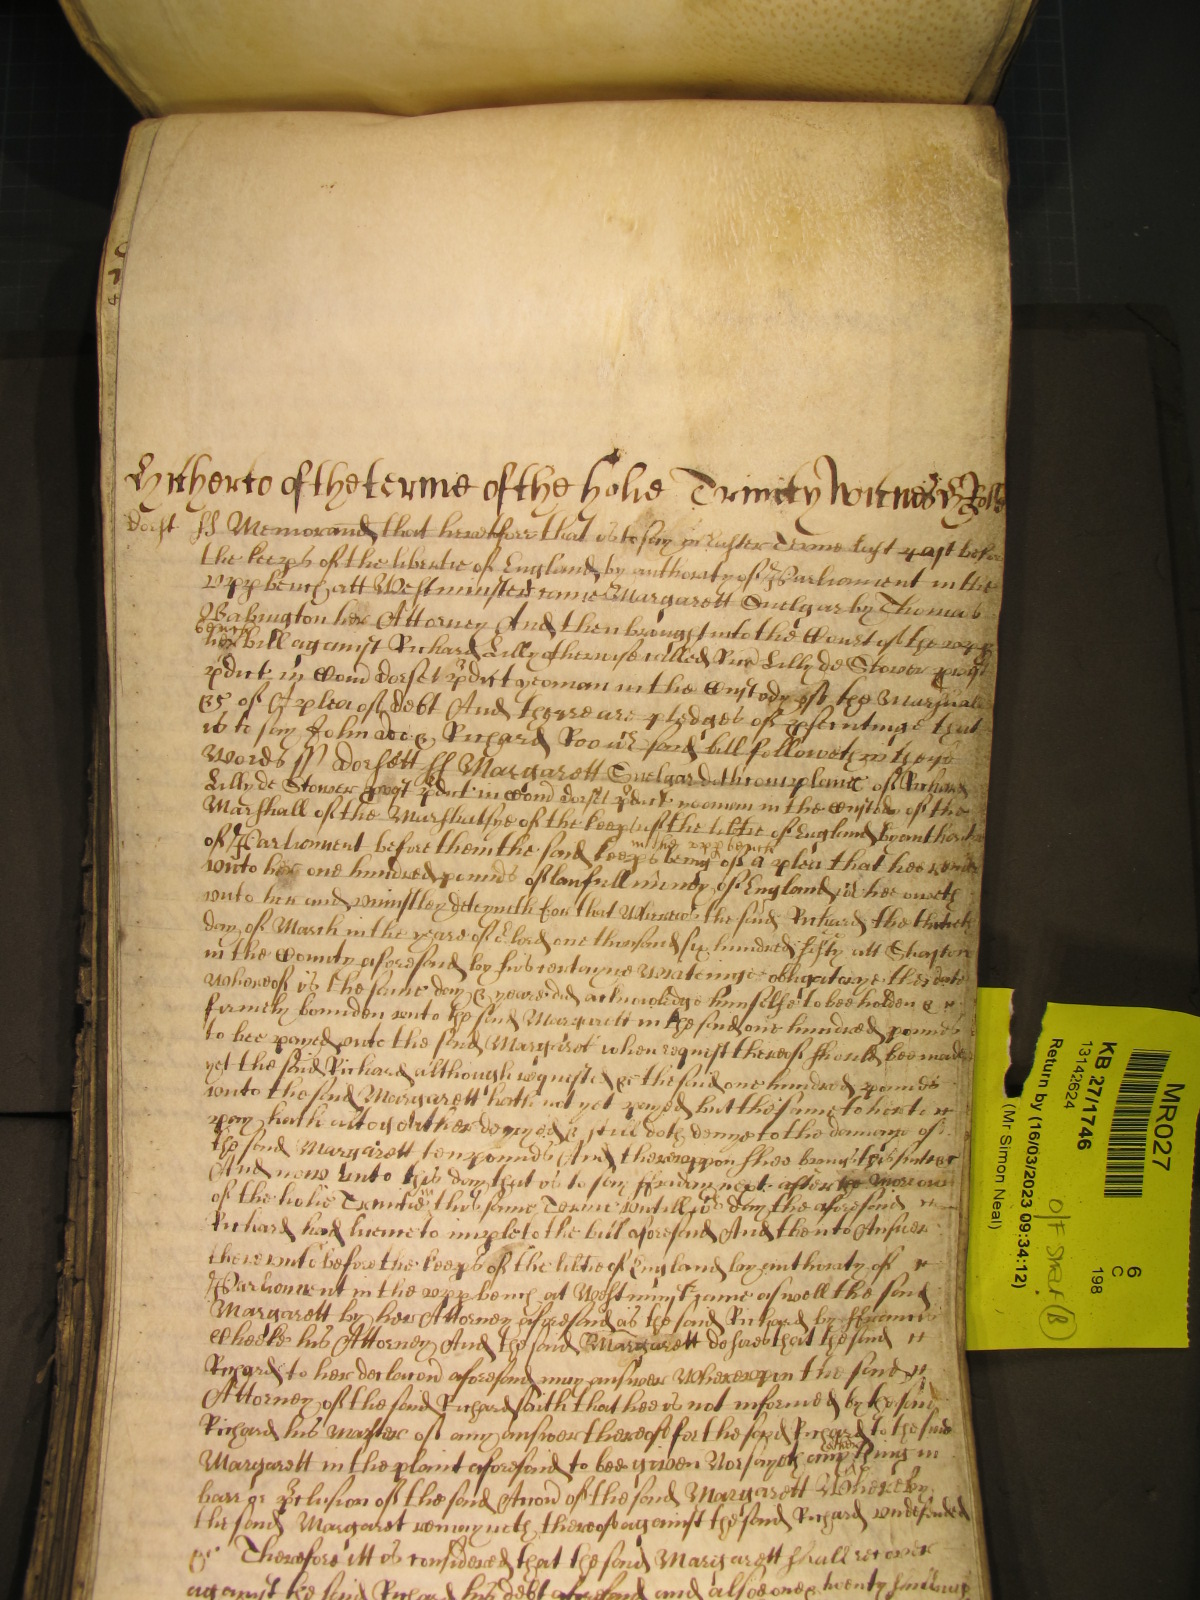 Hitherto of the terme of the holie Trinity Witnes H Rolle
Dorst ss Memorand that heretofore that is to say in Easter Terme last past before
the keeps of the libertie of England by authority of Parliament in the
upp bench att Westminster came Margarett Snelgar by Thomas
Babington her Attorney And then brought into the Court of the upp
bench
her bill against Richard Lilly otherwise called Ric Lilly de Stower
pdict in Com Dorset pdict yeoman in the Custody of the Marshall
&c of A plea of debt And there are pledges of psecutinge that
is to say John Doe & Richard Roo wch said bill followeth in theis
Words ss Dorsett ss Margarett Snelgar doth complaine of Richard
Lilly de Stower pdict in Com Dorset pdict yeoman in the Custody of the
Marshall of the Marshalsye of the keeps of the libtie of England by authoritie
in the upp bench
of Parliament before them the said keeps being of a plea that hee render
unto her one hundred pounds of lawfull money of England wch hee oweth
unto her and uniustley deteyneth for that Whereas the said Richard the
day of March in the yeare of or Lord one thousand six hundred fifty att Shafton
in the County aforesaid by his certayne Writeinge obligatorye the date
whereof is the same day & yeare did acknowledge himselfe to bee holden &
firmely bounden unto the said Margarett in the said one hundred pounds
to bee payed unto the said Margaret when request thereof should bee made
yet the said Richard although requested &c the said one hundred pounds
unto the said Margarett hath not yet payed but the same to her to
pay hath altogeather denyed & still doth denye to the damage of
the said Margarett ten pounds And thereuppon shee bringeth suite &c
And now unto this day that is to say ffryday next after the Morrow
of the holie Trinitie this same Terme untill wch day the aforesaid
Richard had licence to imple to the bill aforesaid And then to Answer
thereunto before the keeps of the libtie of England by authority of
Parliament in the upp bench at Westminstr came aswell the said
Margarett by her Attorney aforesaid as the said Richard by ffrancis
Cheeke his Attorney And the said Margarett desires that the said
Richard to her declaracon aforesaid may answer Whereuppon the said
Attorney of the said Richard saith that hee is not informed by the said
Richard his Master of any answer thereof for the said Richard to the said
Margarett in the plaint aforesaid to bee given Nor sayth any thing in
barr or pclusion of the said Accon of the said Margarett Whereby
the said Margaret remayneth thereof against the said Richard undefended
&c Therefore itt is considered that the said Margarett shall recover
against the said Richard his debt aforesaid and alsoe one & twenty shillings
MR027
KB 27/1746
13142624
Return by (16/03/2023 09:34:12)
(Mr Simon Neal)
6
C
198
Off Shelf (B)